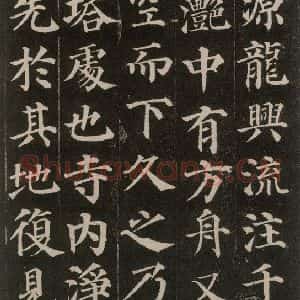 源龍興流注千
灔中有方舟又
空而下久之乃
塔處也寺内淨
先於其地復見